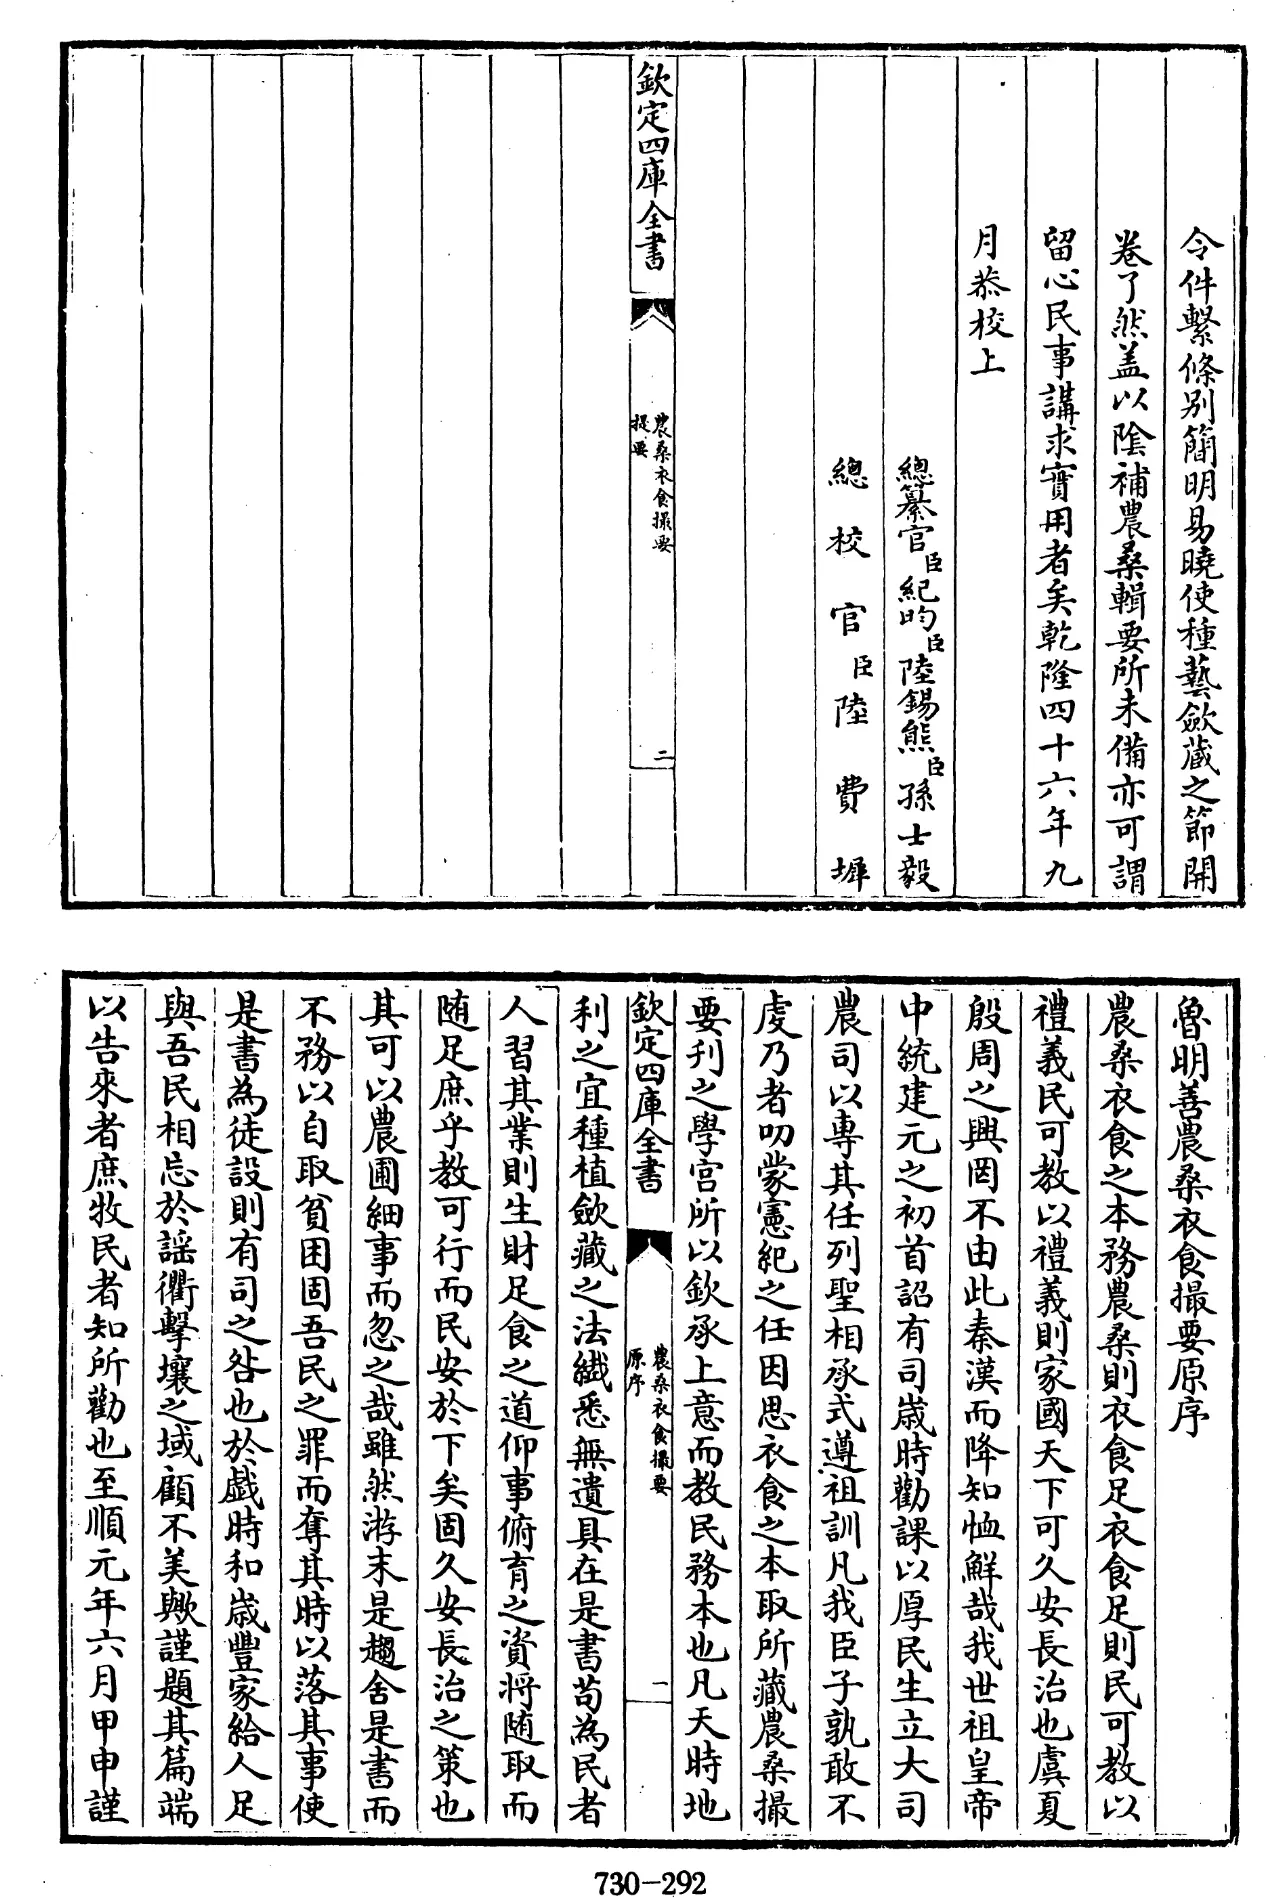 令件繫條别簡明易曉使種藝斂蔵之節開
卷了然盖以陰補農桑輯要所未備亦可謂
留心民事講求實用者矣乾隆四十六年九
月恭校上
總纂官臣紀昀臣陸錫熊臣孫士毅
總校官臣陸費墀
欽定四庫全書
農桑衣食撮要
提要
二
魯明善農桑衣食撮要原序
農桑衣食之本務農桑則衣食足衣食足則民可教以
禮義民可教以禮義則家國天下可久安長治也虞夏
殷周之興罔不由此秦漢而降知恤鮮哉我世祖皇帝
中統建元之初首詔有司歲時勸課以厚民生立大司
農司以專其任列聖相承式遵祖訓凡我臣子孰敢不
虔乃者叨蒙憲紀之任因思衣食之本取所藏農桑撮
要刋之學宫所以欽承上意而教民務本也凡天時地
欽定四庫全書
農桑衣食撮要
原序
一
利之宜種植斂藏之法纎悉無遺具在是書苟為民者
人習其業則生財足食之道仰事俯育之資将随取而
随足庶乎教可行而民安於下矣固久安長治之策也
其可以農圃細事而忽之哉雖然游末是趨舍是書而
不務以自取貧困固吾民之罪而奪其時以落其事使
是書為徒設則有司之咎也於戯時和歲豐家給人足
與吾民相忘於謡衢擊壤之域顧不美歟謹題其篇端
以告來者庶牧民者知所勸也至順元年六月甲申謹
730-292